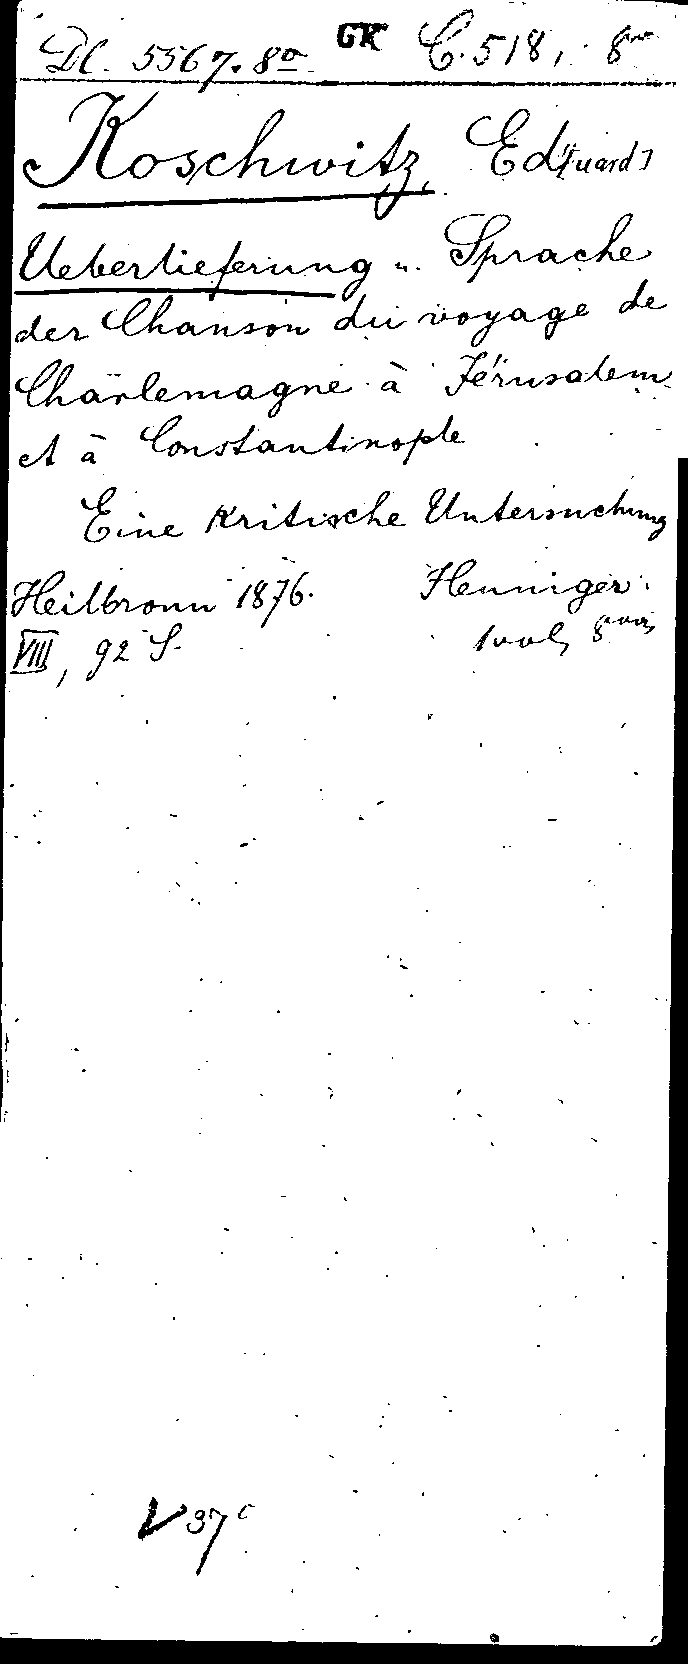 Dl. 5567. 8º GK C. 518, 8vo
Koschwitz, Ed[uard]
Ueberlieferung u. Sprache
der Chanson du voyage de
Charlemagne à Jérusalem
et à Constantinople
Eine kritische Untersuchung
Heilbronn 1876. Henniger.
VIII, 92 S. 1 vol, 8vo
V 37 c